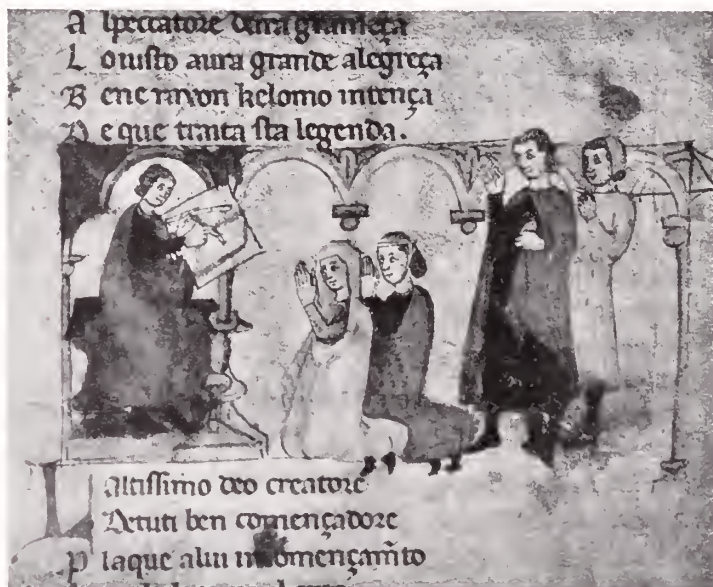 A lpeccatore dara grameça
L oiusto aura grande alegreça
B ene raxon kelomo intença
D e que traita sta legenda.
Altissimo deo creatore
De tuti ben començadore
P laque a lui